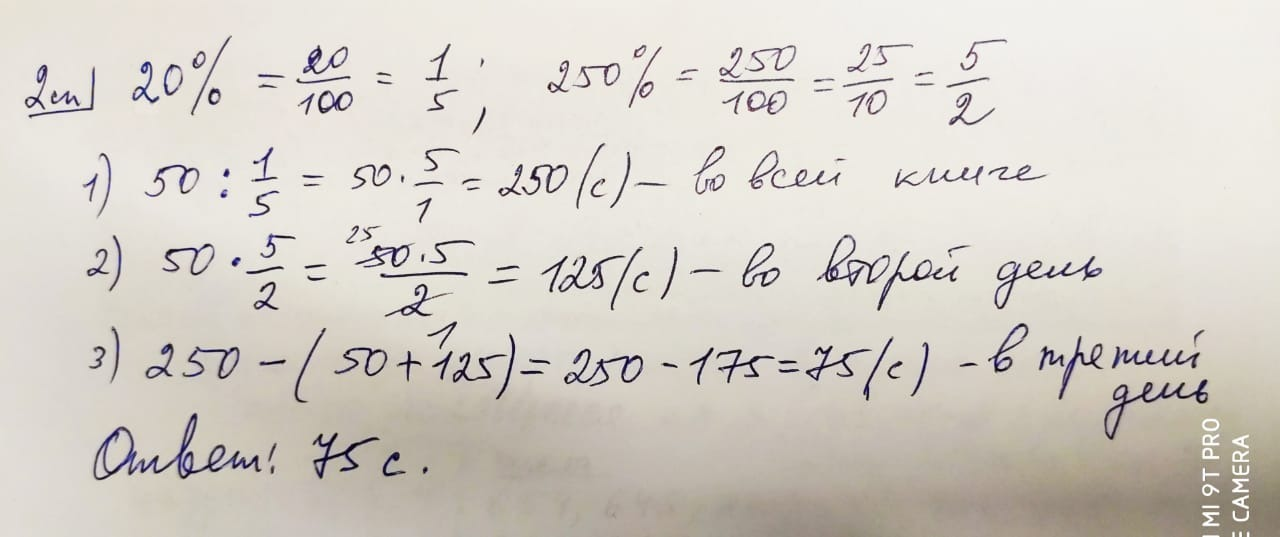 2сп| 20% = 20/100 = 1/5 ; 250% = 250/100 = 25/10 = 5/2
1) 50 : 1/5 = 50 · 5/1 = 250 (с) – во всей книге
2) 50 · 5/2 = 25 50 · 5 / 2 1 = 125 (с) – во второй день
3) 250 – (50 + 125) = 250 – 175 = 75 (с) – в третий
день
Ответ: 75 с.
MI 9T PRO
CAMERA